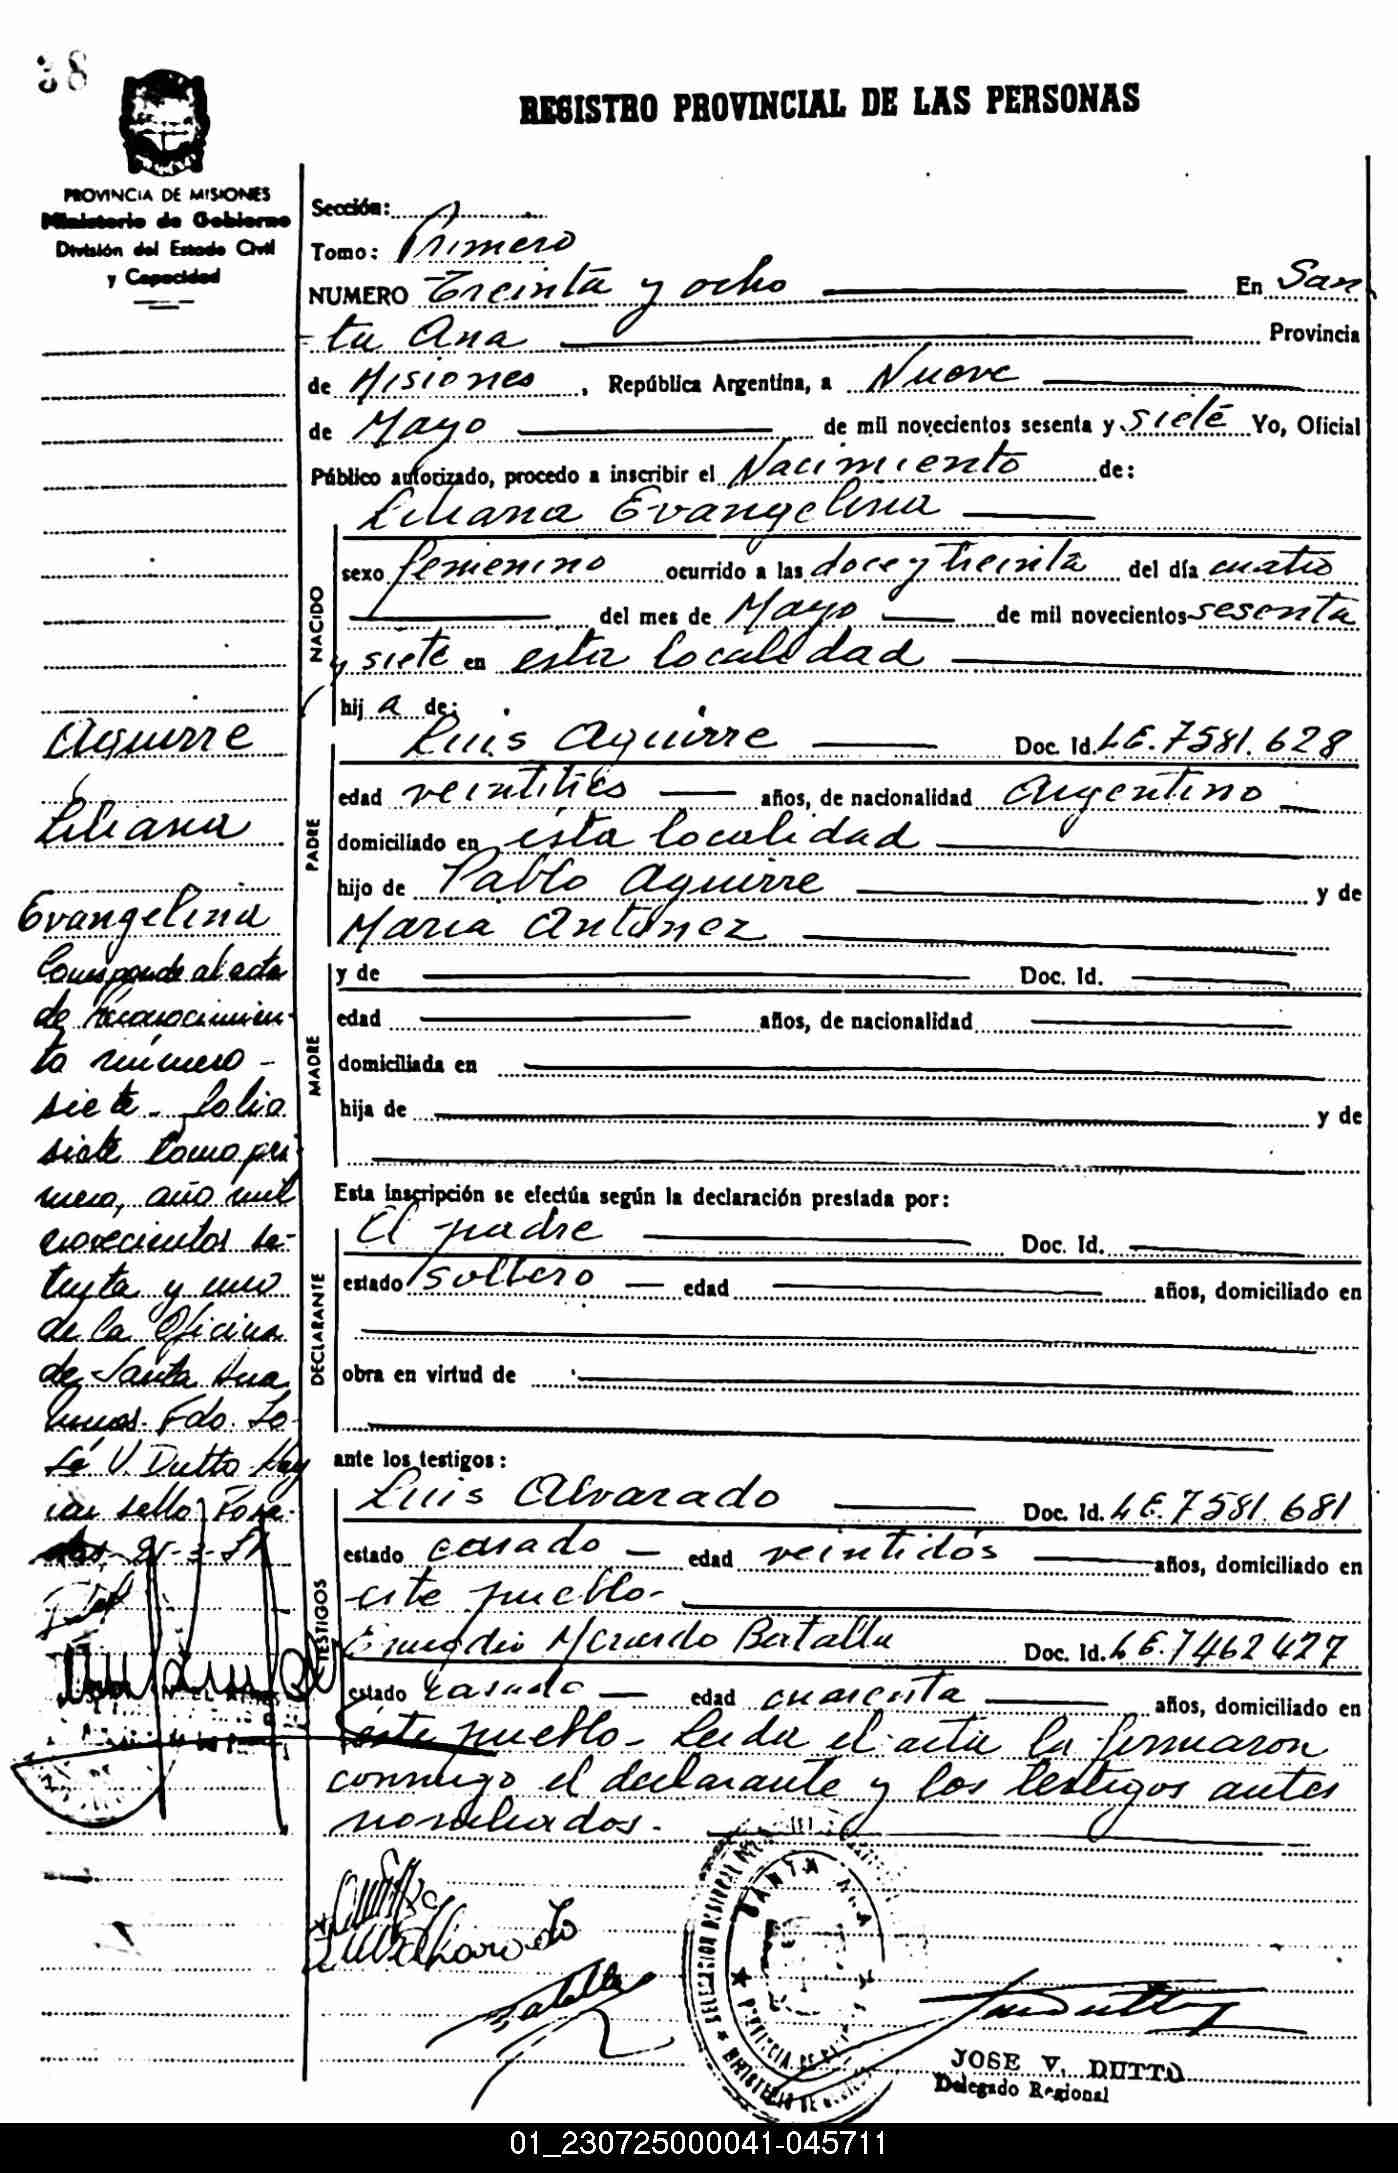 38
REGISTRO PROVINCIAL DE LAS PERSONAS
PROVINCIA DE MISIONES
Ministerio de Gobierno
División del Estado Civil
y Capacidad
Sección:
Tomo: Primero
NUMERO Treinta y ocho En San
ta Ana Provincia
de Misiones, República Argentina, a Nueve
de Mayo de mil novecientos sesenta y siete Yo, Oficial
Público autorizado, procedo a inscribir el Nacimiento de:
Liliana Evangelina
NACIDO
sexo femenino ocurrido a las doce y treinta del día cuatro
del mes de Mayo de mil novecientos sesenta
y siete en esta localidad
hija de:
PADRE
Luis Aguirre Doc. Id. LE. 7581.628
edad veintitres años, de nacionalidad Argentino
domiciliado en esta localidad
hijo de Pablo Aguirre y de
Maria Antunez
MADRE
y de Doc. Id.
edad años, de nacionalidad
domiciliada en
hija de y de
Esta inscripción se efectúa según la declaración prestada por:
DECLARANTE
El padre Doc. Id.
estado soltero edad años, domiciliado en
obra en virtud de
ante los testigos:
TESTIGOS
Luis Alvarado Doc. Id. LE. 7581.681
estado casado edad veintidós años, domiciliado en
este pueblo-
Batalla Doc. Id. LE. 7462427
estado casado edad cuarenta años, domiciliado en
este pueblo- Leida el acta la firmaron
conmigo el declarante y los testigos antes
nombrados.-
Aguirre
Liliana
Evangelina
Corresponde al acta
de Reconocimien-
to número -
siete - folio
siete tomo pri
mero, año mil
novecientos se-
tenta y uno
de la Oficina
de Santa Ana
Fdo. Jo-
sé V. Dutto Hay
un sello Posa-
das
L Alvarado
Batalla
SANTA ANA
JOSE V. DUTTO
Delegado Regional
01_230725000041-045711